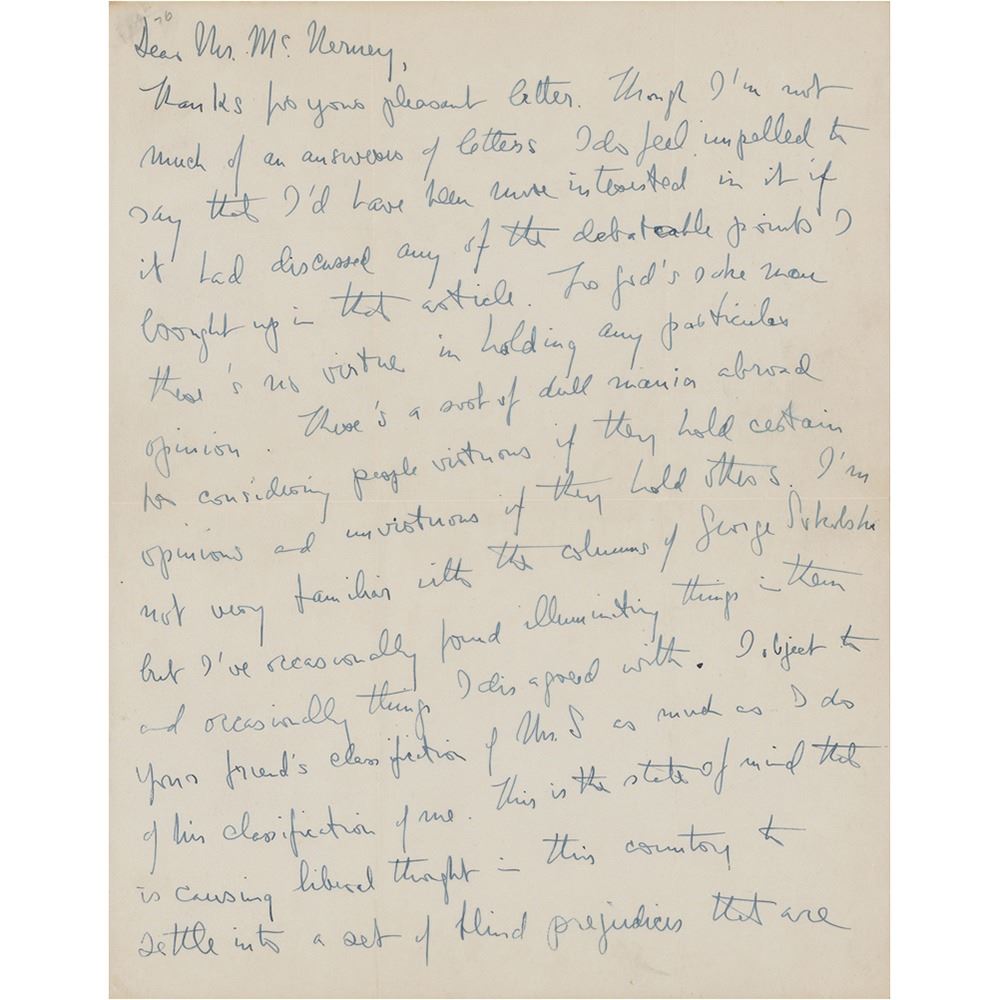 Dear Mr. McNerney,
Thanks for your pleasant letter. Though I'm not
much of an answerer of letters I do feel impelled to
say that I'd have been more interested in it if
it had discussed any of the debateable points I
brought up in that article. For God's sake man
there's no virtue in holding any particular
opinion. There's a sort of dull mania abroad
for considering people virtuous if they hold certain
opinions and unvirtuous if they hold others. I'm
not very familiar with the columns of George Sokolsky
but I've occasionally found illuminating things in them
and occasionally things I disagreed with. I object to
your friend's classification of Mr. S as much as I do
of his classification of me. This is the state of mind that
is causing liberal thought in this country to
settle into a set of blind prejudices that are